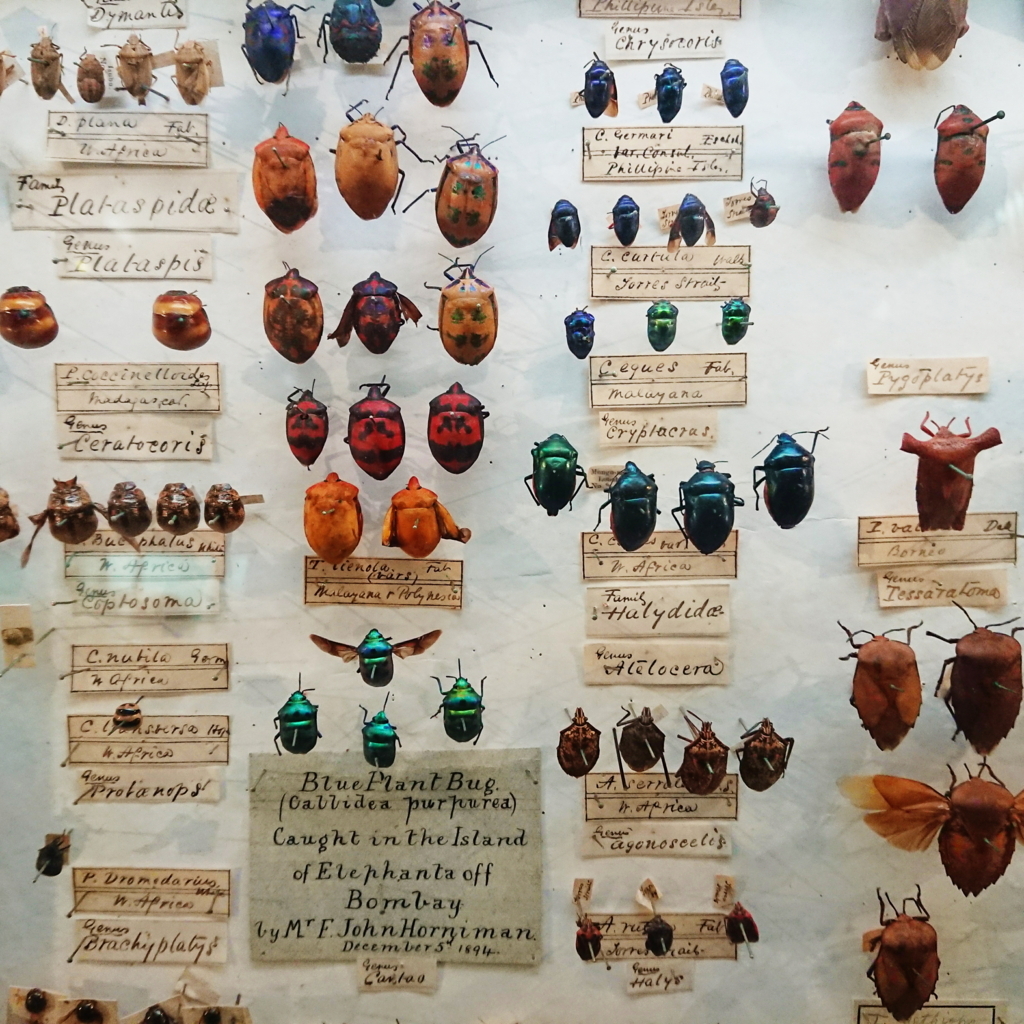 Dymantis
D. plana Fab.
W. Africa
Family
Plataspidæ
Genus
Plataspis
P. Coccinelloides
Madagascar.
Genus
Ceratocoris
Bucephalus White
W. Africa
Genus
Coptosoma
C. nubila Germ
W Africa
C. transversa
W. Africa
Genus
Probanops
P. Dromedarius
W. Africa
Genus
Brachyplatys
T. lienola. Fab
(vars)
Malayana & Polynesia
Blue Plant Bug.
(Callidea purpurea)
Caught in the Island
of Elephanta off
Bombay
by Mr F. John Horniman.
December 5th 1894.
Genus
Cantao
Phillipine Isles.
Genus
Chrysocoris
C. Germari Esch.
var. Consul.
Phillipine Isles.
C. curtula Walk
Torres Strait
C. eques Fab.
Malayana
Genus
Cryptacrus.
C.
W. Africa
Family
Halydidæ
Genus
Atelocera
A. serrata
W. Africa
Genus
Agonoscelis
A. Fab
Torres Strait
Genus
Halys
Genus
Pygoplatys
P. Dall
Borneo
Genus
Tessaratoma